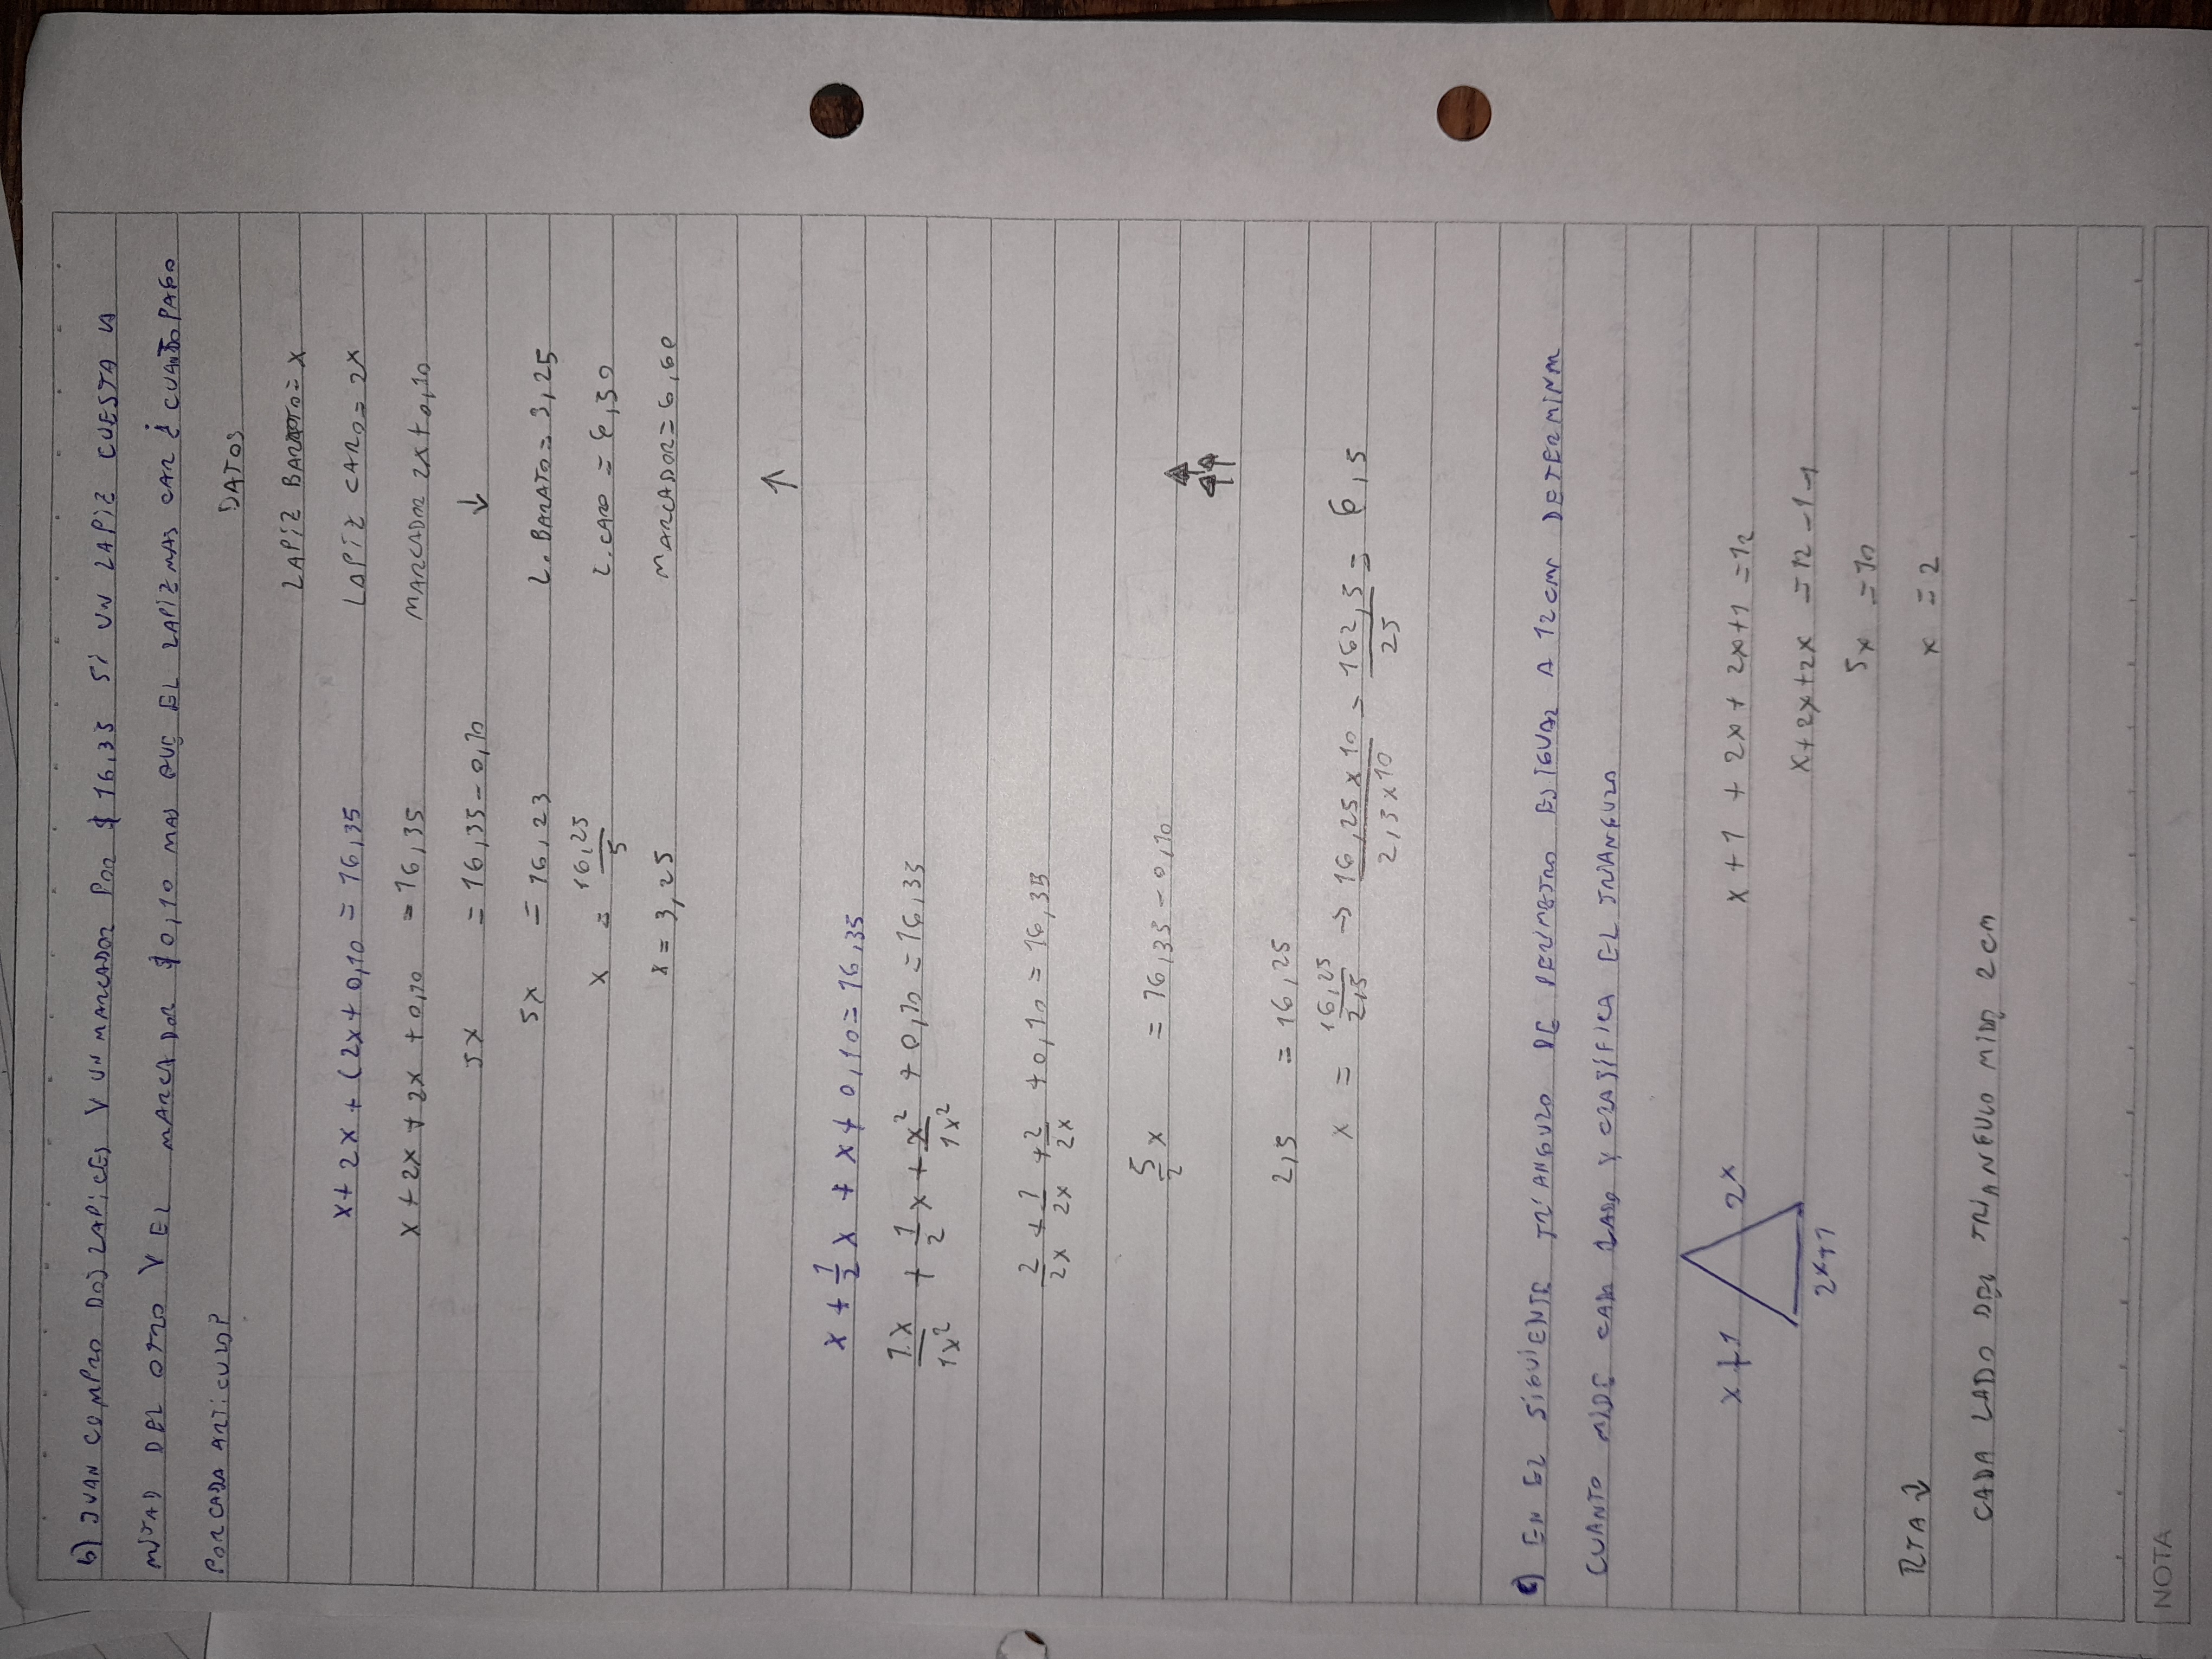 b) JUAN COMPRO DOS LAPICES Y UN MARCADOR POR $ 16,35 SI UN LAPIZ CUESTA LA
MITAD DEL OTRO Y EL MARCADOR $ 0,10 MAS QUE EL LAPIZ MAS CAR ¿ CUANTO PAGO
POR CADA ARTICULO?
DATOS
LAPIZ BARATO = X
x + 2x + (2x + 0,10 = 16,35
LAPIZ CARO = 2X
x + 2x + 2x + 0,10 = 16,35
MARCADOR 2x + 0,10
5x = 16,35 - 0,10
↓
5x = 16,25
L. BARATO = 3,25
x = 16,25/5
L. CARO = 6,50
x = 3,25
MARCADOR = 6,60
↑
x + 1/2 x + x + 0,10 = 16,35
1.x/1x2 + 1/2 x + x2/1x2 + 0,10 = 16,35
2/2x + 1/2x + 2/2x + 0,10 = 16,35
5/2 x = 16,35 - 0,10
2,5 = 16,25
x = 16,25/2,5 → 16,25 x 10/2,5 x 10 = 162,5/25 = 6,5
c) EN EL SIGUIENTE TRIANGULO DE PERIMETRO ES IGUAL A 12 cm DETERMINA
CUANTO MIDE CADA LADO Y CLASIFICA EL TRIANGULO
x + 1
2x
2x+1
x + 1 + 2x + 2x + 1 = 12
x + 2x + 2x = 12 - 1 - 1
5x = 10
x = 2
RTA ↓
CADA LADO DEL TRIANGULO MIDE 2 cm
NOTA